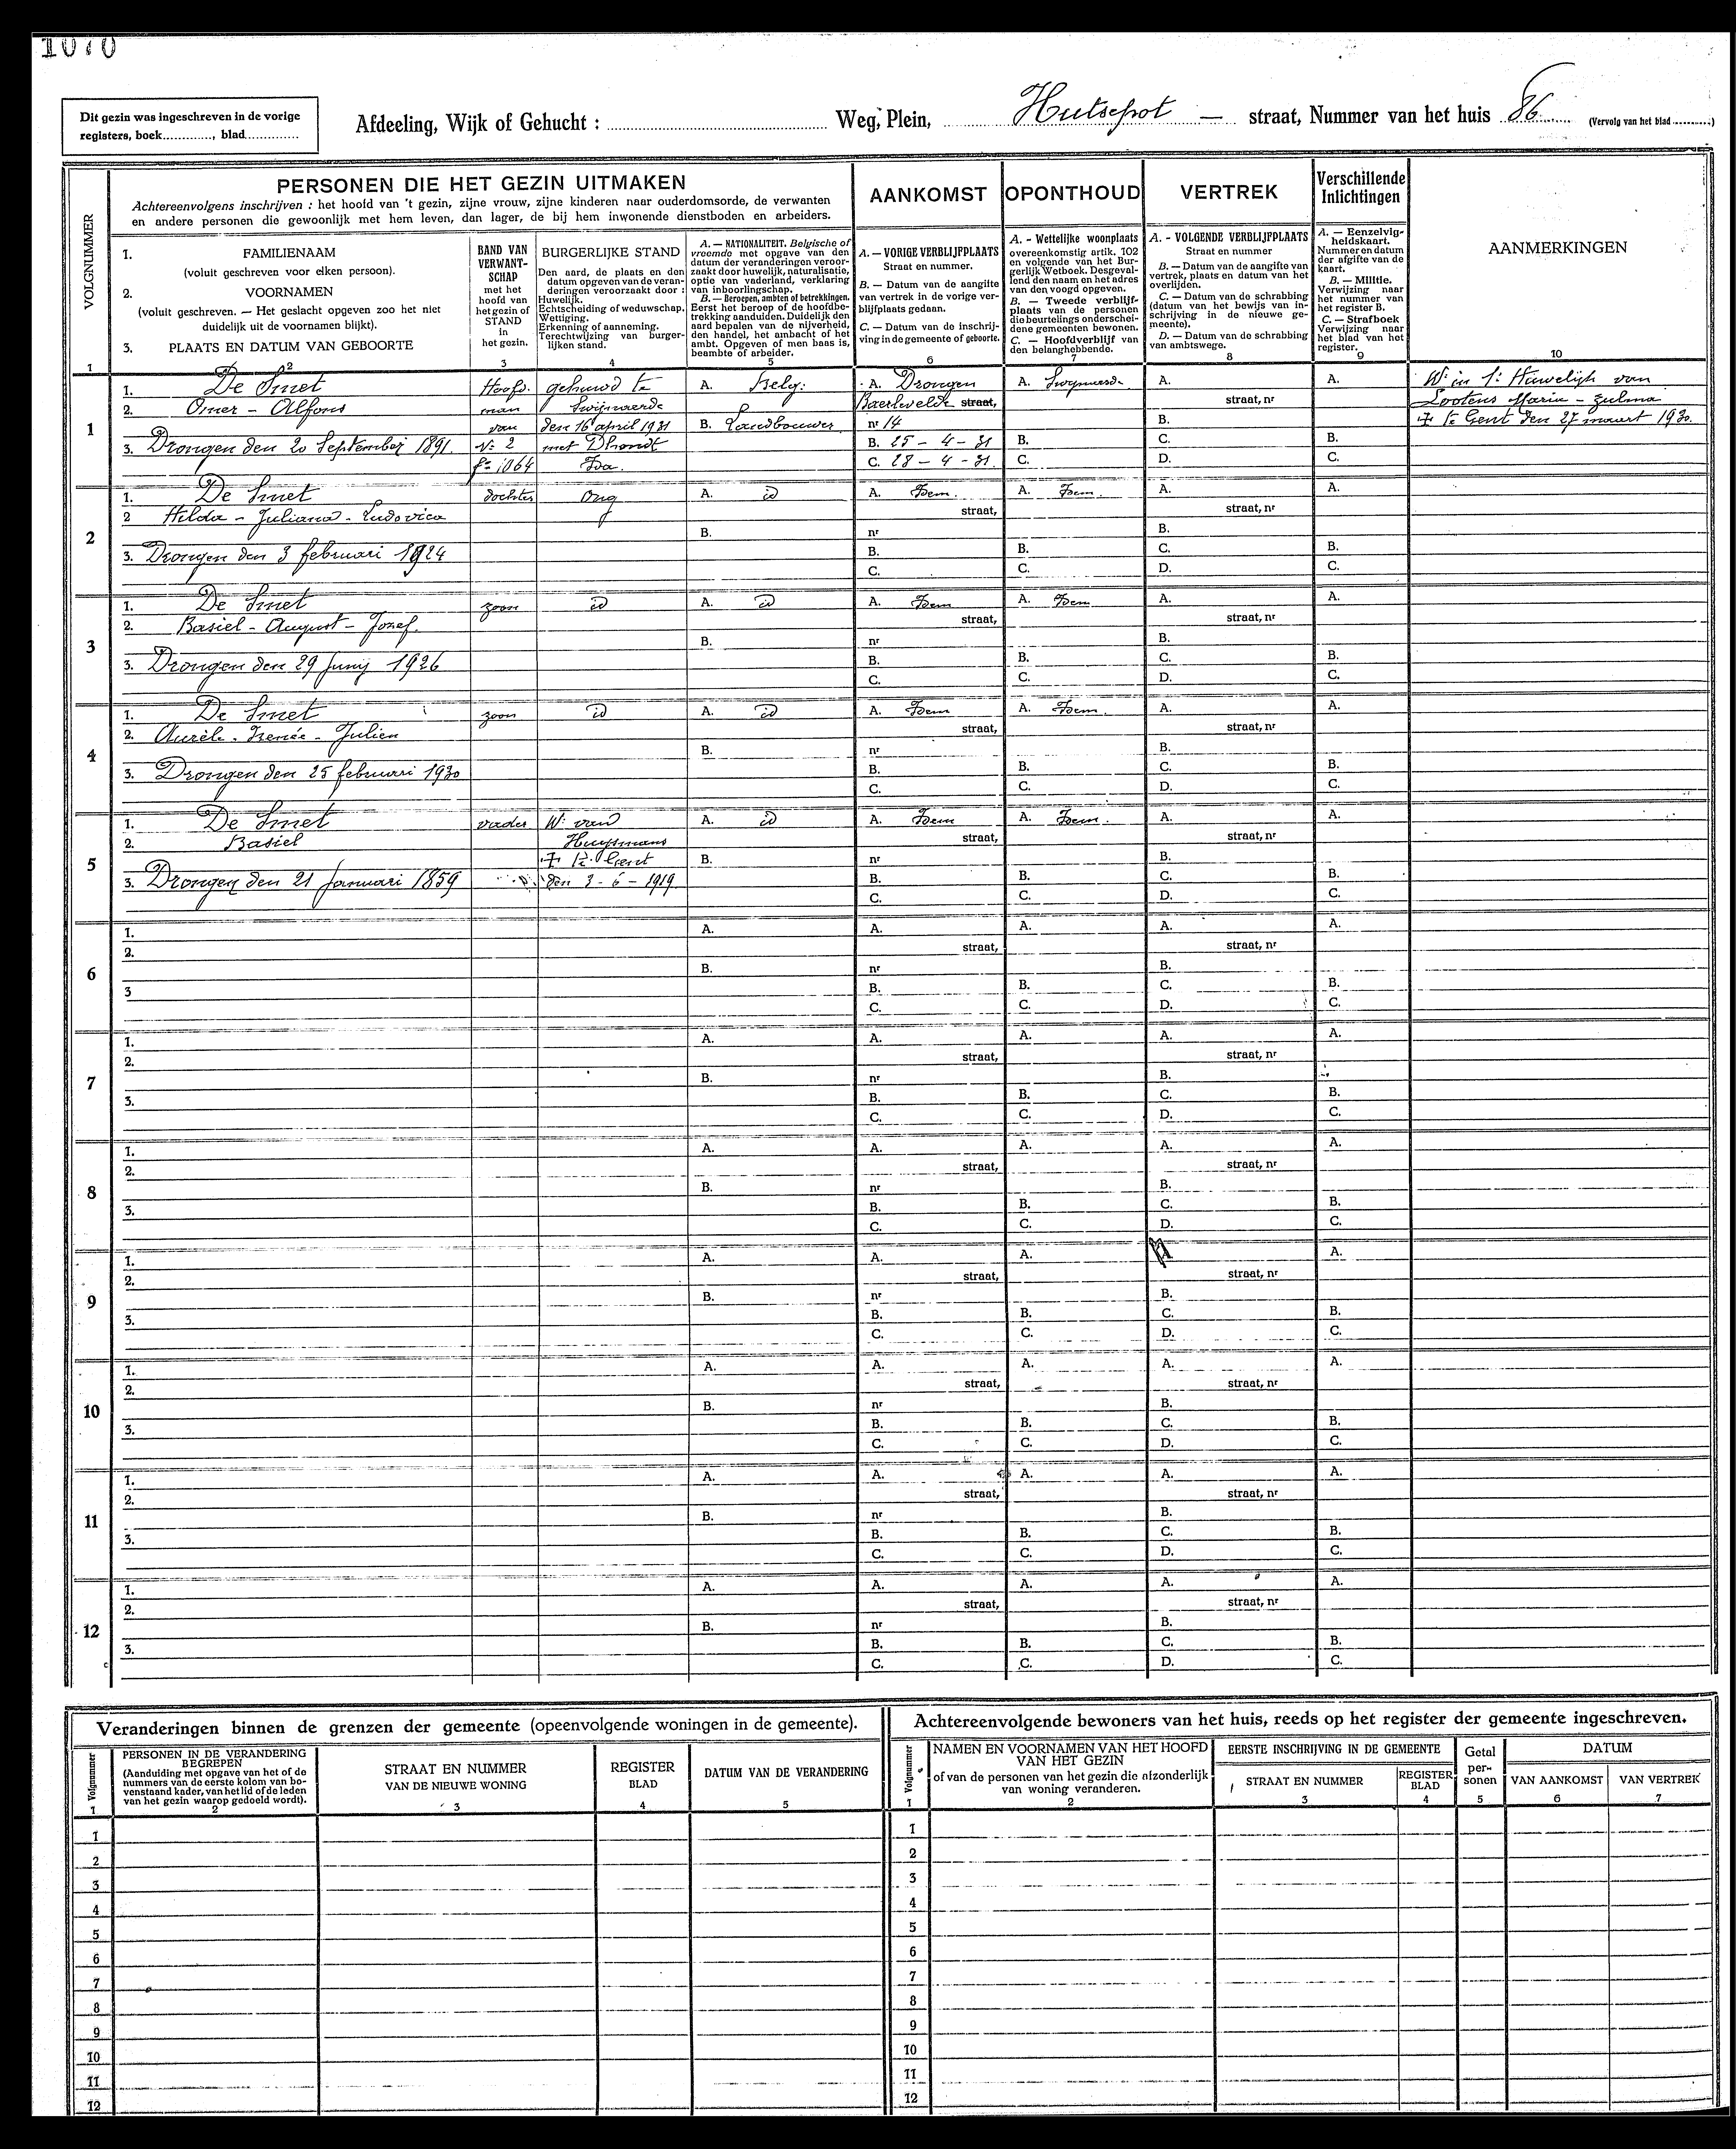 1070
Dit gezin was ingeschreven in de vorige
registers, boek............, blad..............
Afdeeling, Wijk of Gehucht : ........................ Weg, Plein, Hutsepot — straat, Nummer van het huis 86 (Vervolg van het blad ..........)
VOLGNUMMER
PERSONEN DIE HET GEZIN UITMAKEN
Achtereenvolgens inschrijven : het hoofd van 't gezin, zijne vrouw, zijne kinderen naar ouderdomsorde, de verwanten
en andere personen die gewoonlijk met hem leven, dan lager, de bij hem inwonende dienstboden en arbeiders.
1. FAMILIENAAM
(voluit geschreven voor elken persoon).
2. VOORNAMEN
(voluit geschreven. — Het geslacht opgeven zoo het niet
duidelijk uit de voornamen blijkt).
3. PLAATS EN DATUM VAN GEBOORTE
BAND VAN
VERWANT-
SCHAP
met het
hoofd van
het gezin of
STAND
in
het gezin.
BURGERLIJKE STAND
Den aard, de plaats en den
datum opgeven van de veran-
deringen veroorzaakt door :
Huwelijk.
Echtscheiding of weduwschap.
Wettiging.
Erkenning of aanneming.
Terechtwijzing van burger-
lijken stand.
A. — NATIONALITEIT. Belgische of
vreemde met opgave van den
datum der veranderingen veroor-
zaakt door huwelijk, naturalisatie,
optie van vaderland, verklaring
van inboorlingschap.
B. — Beroepen, ambten of betrekkingen.
Eerst het beroep of de hoofdbe-
trekking aanduiden. Duidelijk den
aard bepalen van de nijverheid,
den handel, het ambacht of het
ambt. Opgeven of men baas is,
beambte of arbeider.
AANKOMST
A. — VORIGE VERBLIJFPLAATS
Straat en nummer.
B. — Datum van de aangifte
van vertrek in de vorige ver-
blijfplaats gedaan.
C. — Datum van de inschrij-
ving in de gemeente of geboorte.
OPONTHOUD
A. - Wettelijke woonplaats
overeenkomstig artik. 102
en volgende van het Bur-
gerlijk Wetboek. Desgeval-
lend den naam en het adres
van den voogd opgeven.
B. — Tweede verblijf-
plaats van de personen
die beurtelings onderschei-
dene gemeenten bewonen.
C. — Hoofdverblijf van
den belanghebbende.
VERTREK
A. - VOLGENDE VERBLIJFPLAATS
Straat en nummer
B. — Datum van de aangifte van
vertrek, plaats en datum van het
overlijden.
C. — Datum van de schrabbing
(datum van het bewijs van in-
schrijving in de nieuwe ge-
meente).
D. — Datum van de schrabbing
van ambtswege.
Verschillende
Inlichtingen
A. — Eenzelvig-
heldskaart.
Nummer en datum
der afgifte van de
kaart.
B. — Militie.
Verwijzing naar
het nummer van
het register B.
C. — Strafboek
Verwijzing naar
het blad van het
register.
AANMERKINGEN
1 2 3 4 5 6 7 8 9 10
1. De Smet Hoofd. gehuwd te A. Belg: A. Drongen A. Swijnaerde A. A. W: in 1e Huwelijk van
2. Omer - Alfons man Swijnaerde Baerlevelde straat, straat, nr Lootens Maria - Zulma
1 van den 16 april 1931 B. Landbouwer nr 14 B. † te Gent den 27 maart 1930
3. Drongen den 20 September 1891. Nr 2 met Dhondt B. 25 - 4 - 31 B. C. B.
f° 1064 Ida. C. 28 - 4 - 31. C. D. C.
1. De Smet dochter ong A. id A. Idem. A. Idem. A. A.
2 Hilda - Juliana - Ludovica straat, straat, nr
2 B. nr B.
3. Drongen den 3 februari 1924 B. B. C. B.
C. C. D. C.
1. De Smet zoon id A. id A. Idem A. Idem A. A.
2. Basiel - August - Jozef. straat, straat, nr
3 B. nr B.
3. Drongen den 29 Junij 1926 B. B. C. B.
C. C. D. C.
1. De Smet zoon id A. id A. Idem A. Idem. A. A.
2. Aurèle - Irenée - Julien straat, straat, nr
4 B. nr B.
3. Drongen den 25 februari 1930 B. B. C. B.
C. C. D. C.
1. De Smet vader W: van A. id A. Idem A. Idem. A. A.
2. Basiel Huysmans straat, straat, nr
5 † te Gent B. nr B.
3. Drongen den 21 Januari 1859 den 3 - 6 - 1919 B. B. C. B.
C. C. D. C.
1. A. A. A. A. A.
2. straat, straat, nr
6 B. nr B.
3 B. B. C. B.
C. C. D. C.
1. A. A. A. A. A.
2. straat, straat, nr
7 B. nr B.
3. B. B. C. B.
C. C. D. C.
1. A. A. A. A. A.
2. straat, straat, nr
8 B. nr B.
3. B. B. C. B.
C. C. D. C.
1. A. A. A. A. A.
2. straat, straat, nr
9 B. nr B.
3. B. B. C. B.
C. C. D. C.
1. A. A. A. A. A.
2. straat, straat, nr
10 B. nr B.
3. B. B. C. B.
C. C. D. C.
1. A. A. A. A. A.
2. straat, straat, nr
11 B. nr B.
3. B. B. C. B.
C. C. D. C.
1. A. A. A. A. A.
2. straat, straat, nr
12 B. nr B.
3. B. B. C. B.
C. C. D. C.
Veranderingen binnen de grenzen der gemeente (opeenvolgende woningen in de gemeente).
Volgnummer
PERSONEN IN DE VERANDERING
BEGREPEN
(Aanduiding met opgave van het of de
nummers van de eerste kolom van bo-
venstaand kader, van het lid of de leden
van het gezin waarop gedoeld wordt).
STRAAT EN NUMMER
VAN DE NIEUWE WONING
REGISTER
BLAD
DATUM VAN DE VERANDERING
1 2 3 4 5
1
2
3
4
5
6
7
8
9
10
11
12
Achtereenvolgende bewoners van het huis, reeds op het register der gemeente ingeschreven.
Volgnummer
NAMEN EN VOORNAMEN VAN HET HOOFD
VAN HET GEZIN
of van de personen van het gezin die afzonderlijk
van woning veranderen.
EERSTE INSCHRIJVING IN DE GEMEENTE
STRAAT EN NUMMER
REGISTER
BLAD
Getal
per-
sonen
DATUM
VAN AANKOMST
VAN VERTREK
1 2 3 4 5 6 7
1
2
3
4
5
6
7
8
9
10
11
12